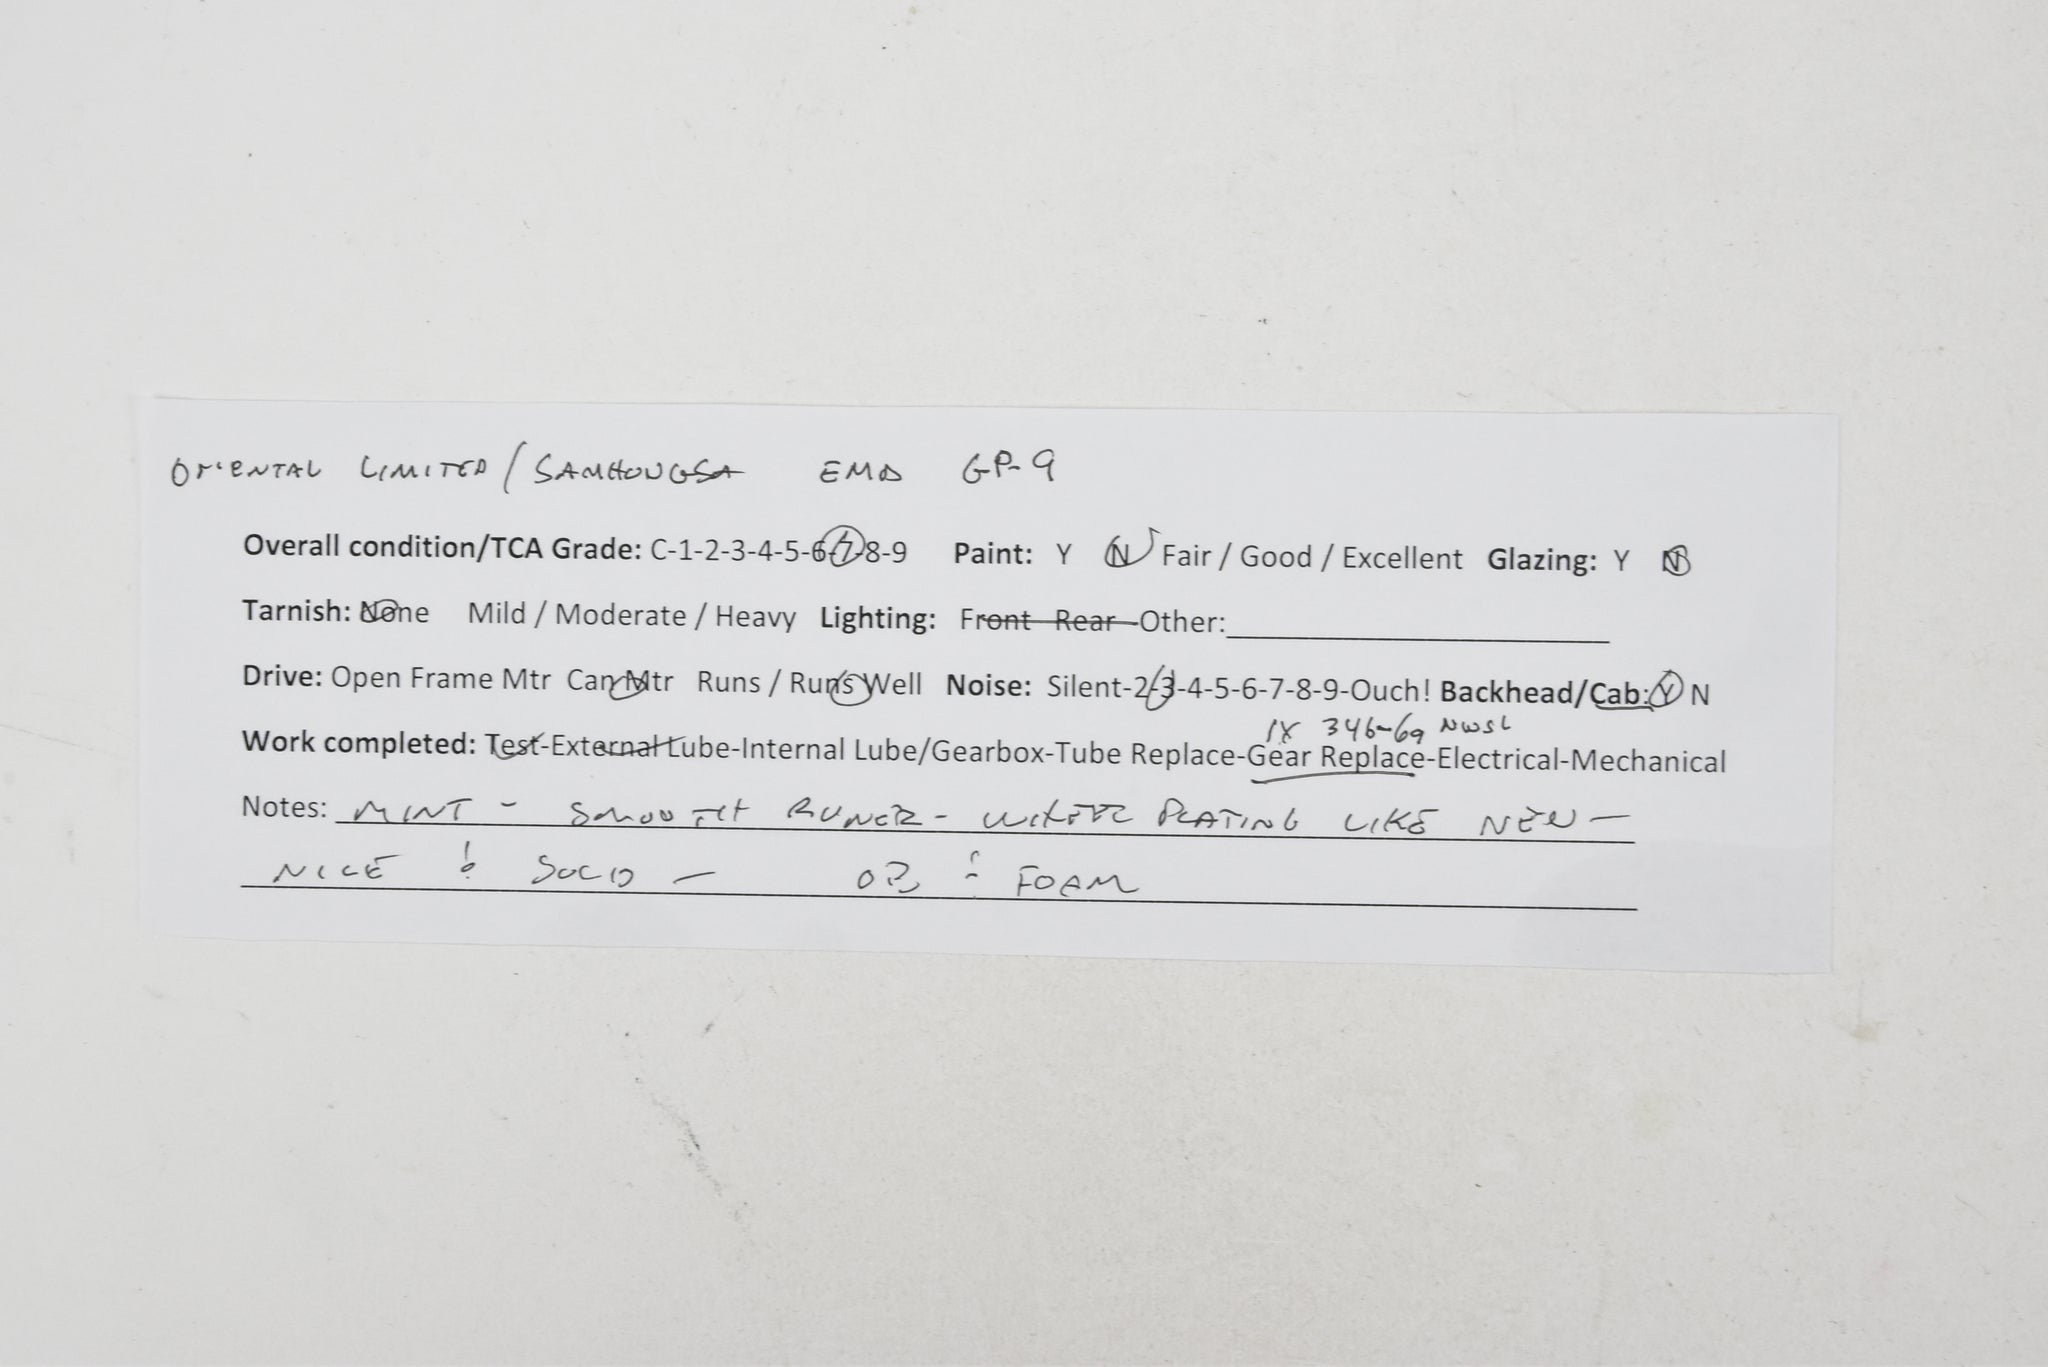 ORIENTAL LIMITED / SAMHONGSA EMD GP-9
Overall condition/TCA Grade: C-1-2-3-4-5-6-7-8-9 Paint: Y N Fair / Good / Excellent Glazing: Y N
Tarnish: None Mild / Moderate / Heavy Lighting: Front Rear Other:
Drive: Open Frame Mtr Can Mtr Runs / Runs Well Noise: Silent-2-3-4-5-6-7-8-9-Ouch! Backhead/Cab: Y N
1X 346-69 NWSL
Work completed: Test-External Lube-Internal Lube/Gearbox-Tube Replace-Gear Replace-Electrical-Mechanical
Notes: MINT - SMOOTH RUNER - WHEEL PLATING LIKE NEW -
NICE & SOLID - OB & FOAM